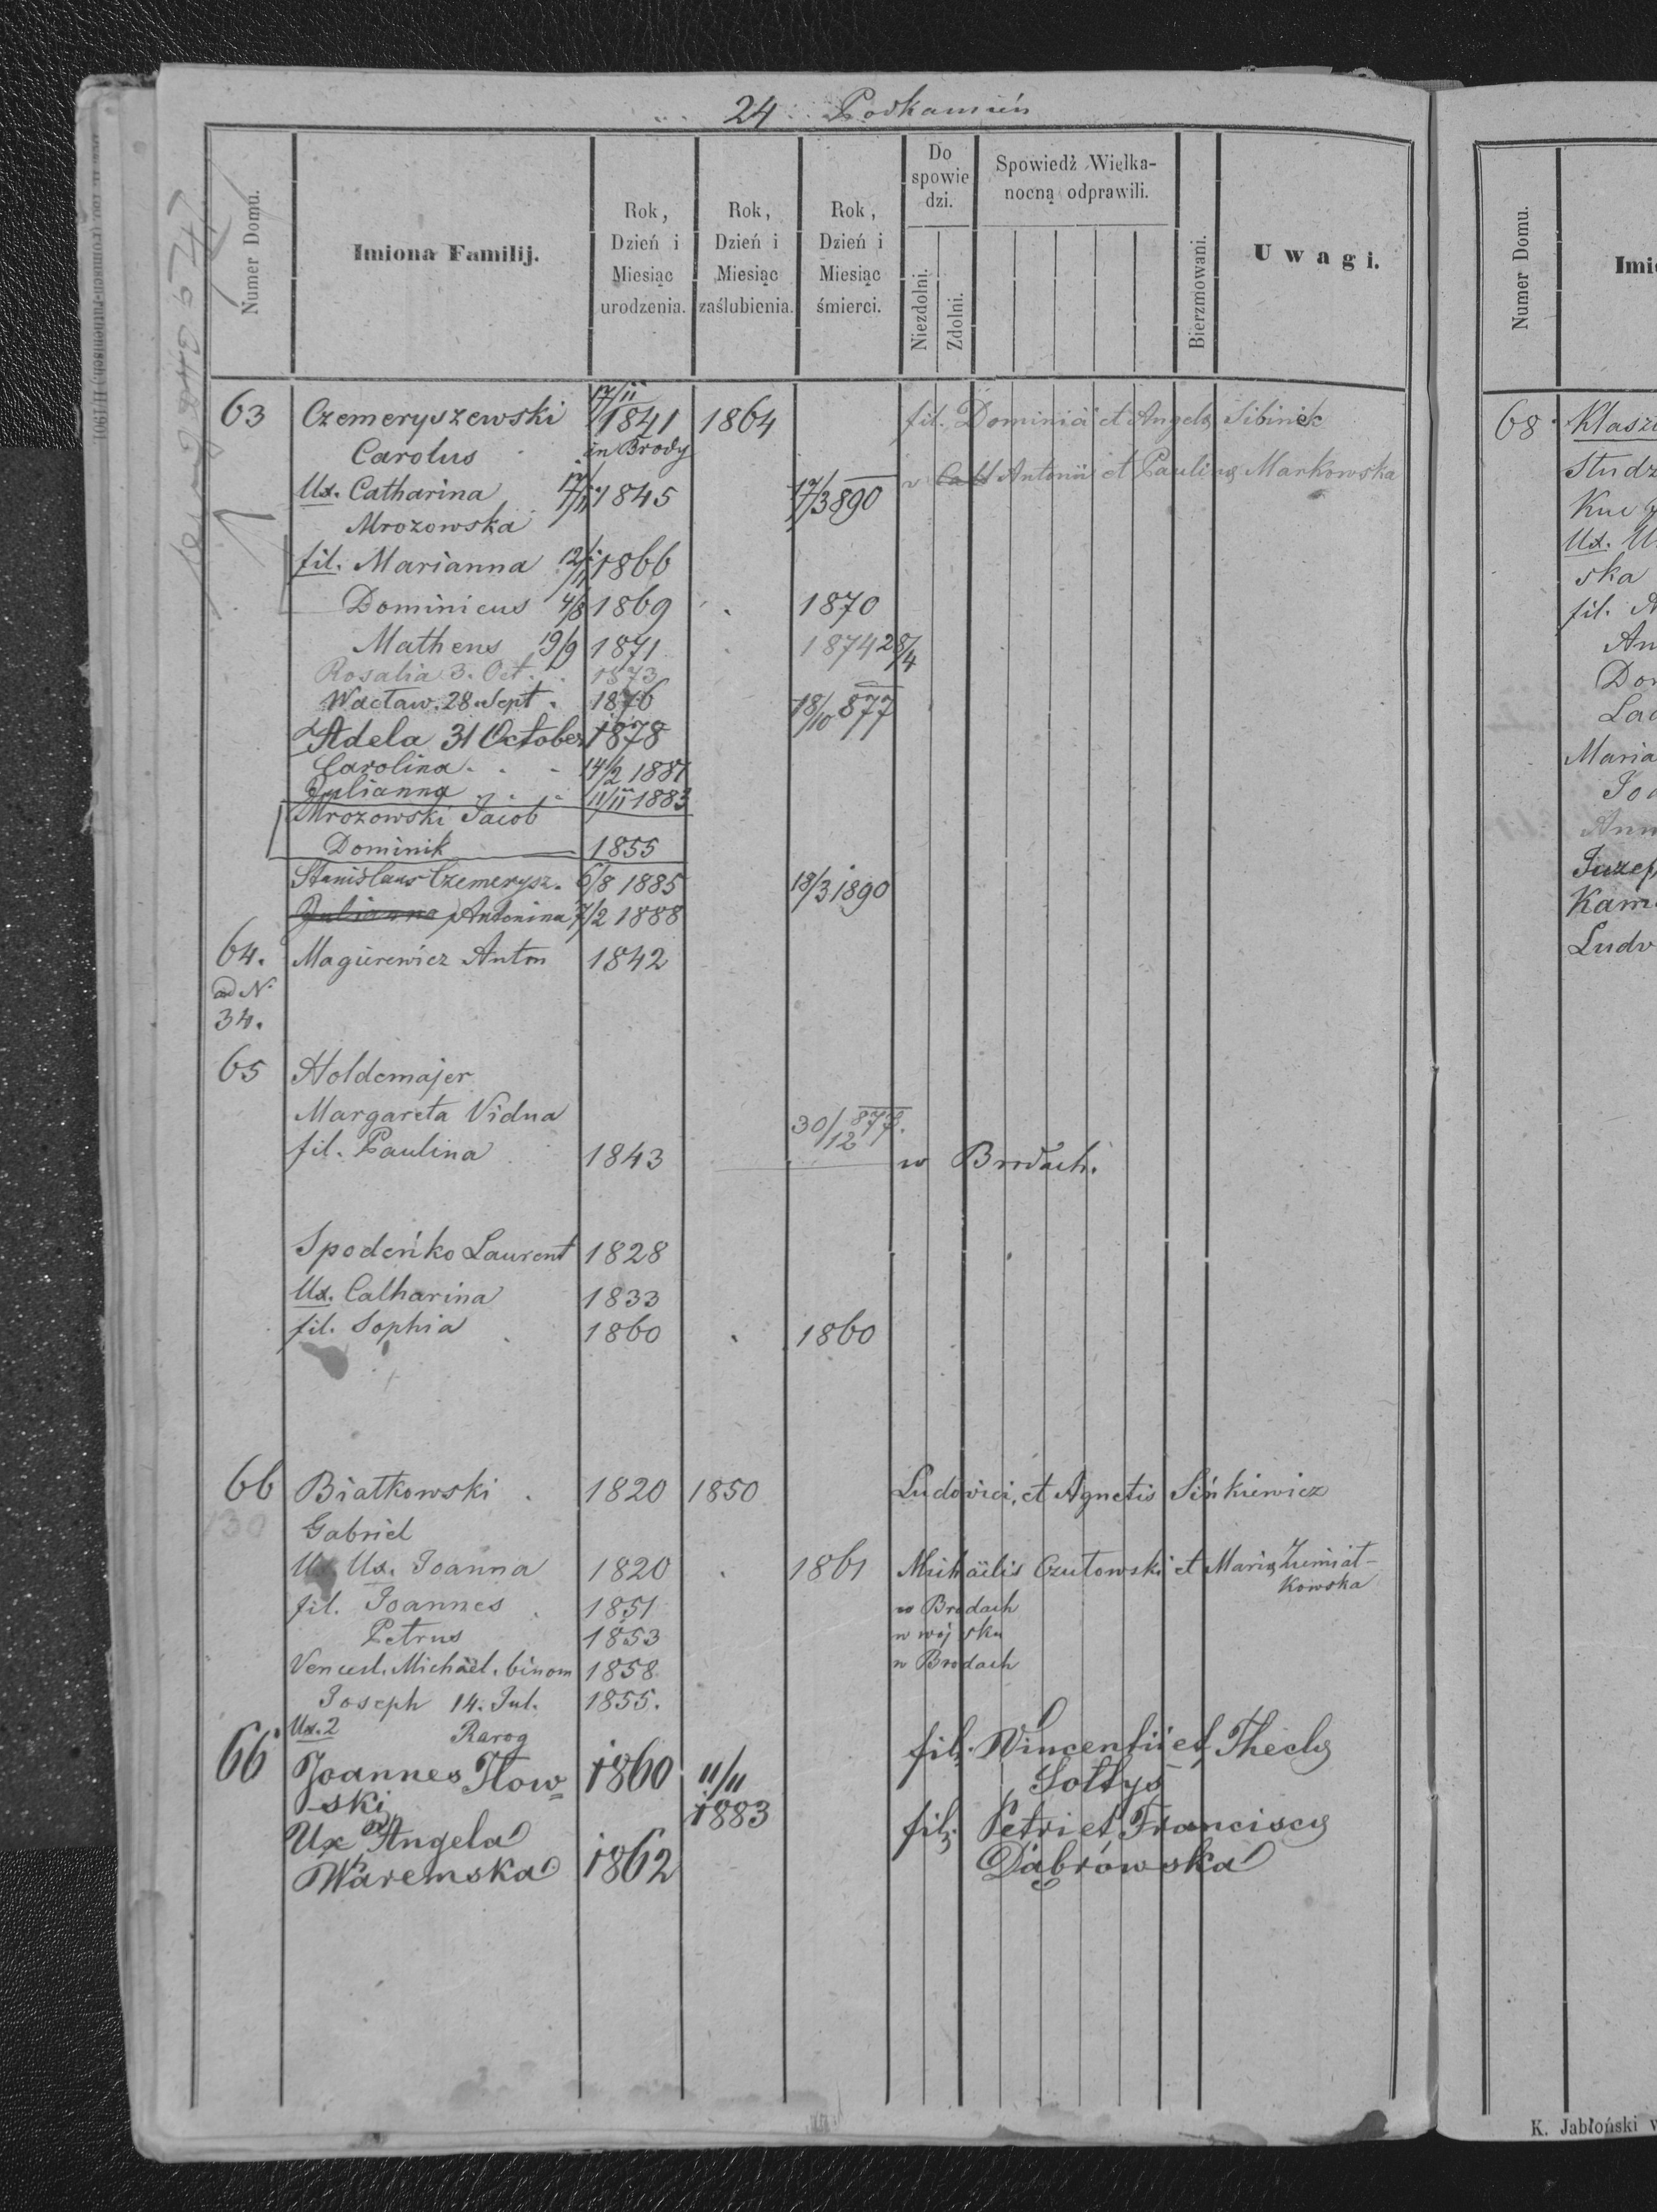 24 Podkamień
Numer Domu.
Imiona Familij.
Rok, Dzień i Miesiąc urodzenia.
Rok, Dzień i Miesiąc zaślubienia.
Rok, Dzień i Miesiąc śmierci.
Do spowiedzi.
Niezdolni.
Zdolni.
Spowiedź Wielkanocną odprawili.
Bierzmowani.
Uwagi.
63 Czemeryszewski 17/11 1841 1864 fil. Dominici et Angela Sibinek
Carolus in Brody
Ux. Catharina 1845 17/3 890 Antonii et Paulina Markowska
Mrozowska
fil. Marianna 12/11 1866
Dominicus 4/8 1869 1870
Matheus 19/9 1871 1874 28/4
Rosalia 3. Oct. 1873
Wacław. 28. Sept. 1876 18/10 877
Adela 31 October 1878
Carolina 14/2 1881
Julianna 11/11 1883
Mrozowski Jacob
Dominik 1855
Stanislaus Czemerysz. 6/8 1885 18/3 1890
Julianna Antonina 7/2 1888
64. Magierewicz Anton 1842
ad N.
34.
65 Holdemajer
Margareta Vidua 30/12 877.
fil. Paulina 1843 w Brodach.
Spodeńko Laurent 1828
Ux. Catharina 1833
fil. Sophia 1860 1860
66 Białkowski 1820 1850 Ludovici, et Agnetis Sińkiewicz
130 Gabriel
Ux. Joanna 1820 1861 Michaëlis Czutowski et Maria Ziemiat-
kowska
fil. Joannes 1851 w Brodach
Petrus 1853 w wojsku
Vencesl. Michaël. binom 1858 w Brodach
Joseph 14. Jul. 1855.
Ux. 2 Rarog
66 Joannes Iłow- 1860 11/11 fil. Wincentii et Thecla
ski 1883 Sołtys
Ux Angela fil. Petri et Francisca
Waremska 1862 Dąbrówska
Numer Domu.
Imi
68 Klasz
Studz
Kuc
Ux.
ska
fil. A
An
Dom
Lad
Maria
Jo
Ann
Juzep
Kam
Ludv
K. Jabłoński w